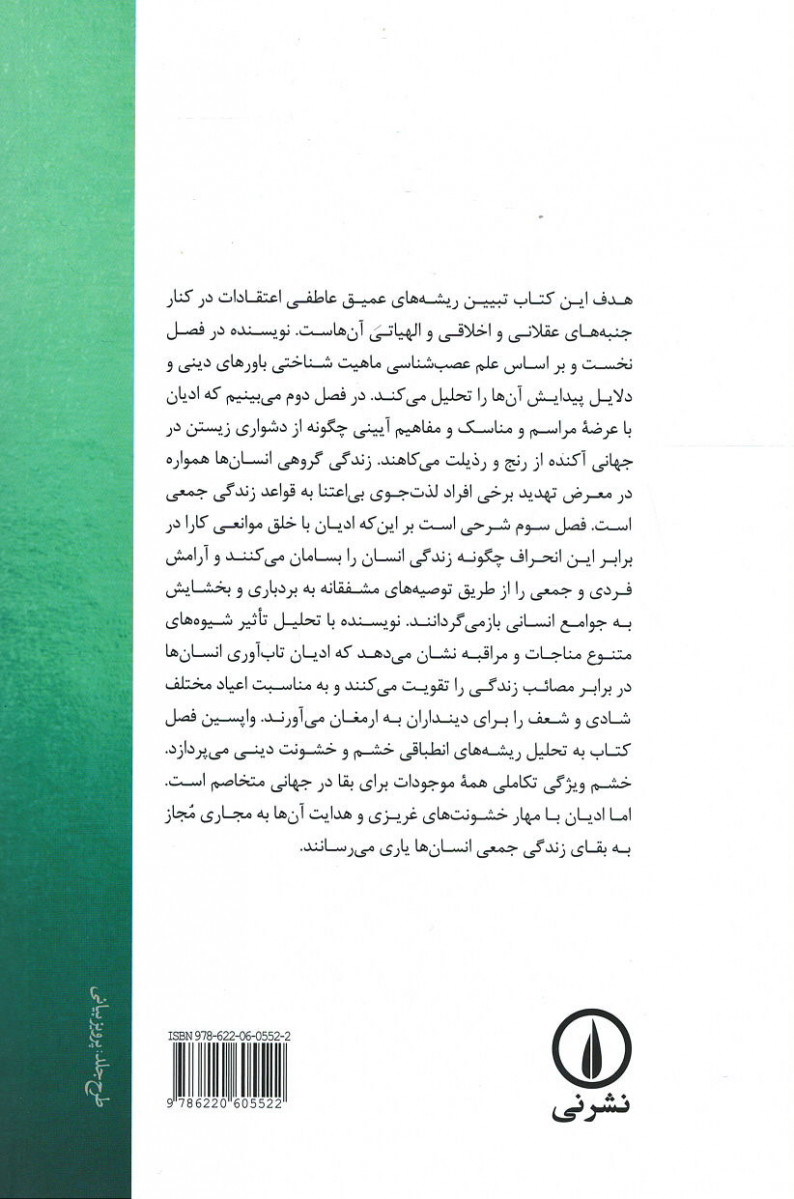 هدف این کتاب تبیین ریشه‌های عمیق عاطفی اعتقادات در کنار
جنبه‌های عقلانی و اخلاقی و الهیاتیِ آن‌هاست. نویسنده در فصل
نخست و بر اساس علم عصب‌شناسی ماهیت شناختی باورهای دینی و
دلایل پیدایش آن‌ها را تحلیل می‌کند. در فصل دوم می‌بینیم که ادیان
با عرضهٔ مراسم و مناسک و مفاهیم آیینی چگونه از دشواری زیستن در
جهانی آکنده از رنج و رذیلت می‌کاهند. زندگی گروهی انسان‌ها همواره
در معرض تهدید برخی افراد لذت‌جوی بی‌اعتنا به قواعد زندگی جمعی
است. فصل سوم شرحی است بر این‌که ادیان با خلق موانعی کارا در
برابر این انحراف چگونه زندگی انسان را بسامان می‌کنند و آرامش
فردی و جمعی را از طریق توصیه‌های مشفقانه به بردباری و بخشایش
به جوامع انسانی بازمی‌گردانند. نویسنده با تحلیل تأثیر شیوه‌های
متنوع مناجات و مراقبه نشان می‌دهد که ادیان تاب‌آوری انسان‌ها
در برابر مصائب زندگی را تقویت می‌کنند و به مناسبت اعیاد مختلف
شادی و شعف را برای دینداران به ارمغان می‌آورند. واپسین فصل
کتاب به تحلیل ریشه‌های انطباقی خشم و خشونت دینی می‌پردازد.
خشم ویژگی تکاملی همهٔ موجودات برای بقا در جهانی متخاصم است.
اما ادیان با مهار خشونت‌های غریزی و هدایت آن‌ها به مجاری مُجاز
به بقای زندگی جمعی انسان‌ها یاری می‌رسانند.
طرح جلد: پرویز بیانی
ISBN 978-622-06-0552-2
9 786220 605522
نشرنی